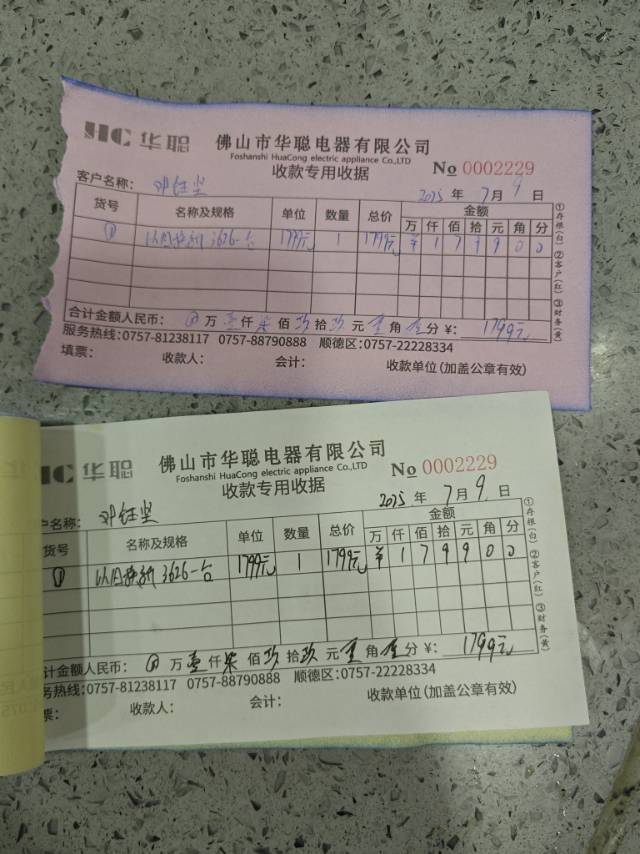 HC 华聪 佛山市华聪电器有限公司
Foshanshi HuaCong electric appliance Co.,LTD
收款专用收据 No 0002229
客户名称: 邓钰坚 2025 年 7 月 9 日
货号 名称及规格 单位 数量 总价 金额
万 仟 佰 拾 元 角 分
① 以旧换新 3626一台 1799元 1 1799元 ¥ 1 7 9 9 0 0
①存根(白) ②客户(红) ③财务(黄)
合计金额人民币: ⊗ 万 壹 仟 柒 佰 玖 拾 玖 元 零 角 零 分 ¥: 1799元
服务热线:0757-81238117 0757-88790888 顺德区:0757-22228334
填票: 收款人: 会计: 收款单位(加盖公章有效)
HC 华聪 佛山市华聪电器有限公司
Foshanshi HuaCong electric appliance Co.,LTD
收款专用收据 No 0002229
户名称: 邓钰坚 2025 年 7 月 9 日
货号 名称及规格 单位 数量 总价 金额
万 仟 佰 拾 元 角 分
① 以旧换新 3626一台 1799元 1 1799元 ¥ 1 7 9 9 0 0
①存根(白) ②客户(红) ③财务(黄)
计金额人民币: ⊗ 万 壹 仟 柒 佰 玖 拾 玖 元 零 角 零 分 ¥: 1799元
务热线:0757-81238117 0757-88790888 顺德区:0757-22228334
票: 收款人: 会计: 收款单位(加盖公章有效)